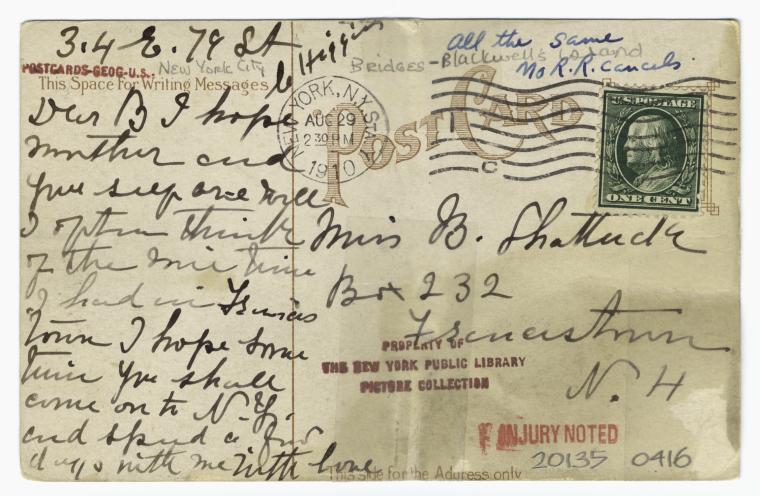 3.4 E. 79 St
C Higgins
All the same
No R.R. Cancels.
Bridges - Blackwell's Island
POSTCARDS-GEOG-U.S.- New York City
This Space for Writing Messages
POST CARD
NEW YORK, N.Y. STA.
AUG 29
2 30 PM
1910
C
U.S. POSTAGE
ONE CENT
Dear B I hope
mother and
your self are well
I oftun think
of the nice time
I had in Francis
town I hope some
time you shall
come on to N.Y.
and spend a few
days with me with love
Miss B. Shattuck
Box 232
Francestown
N. H
PROPERTY OF
THE NEW YORK PUBLIC LIBRARY
PICTURE COLLECTION
INJURY NOTED
20135 0416
This side for the Address only